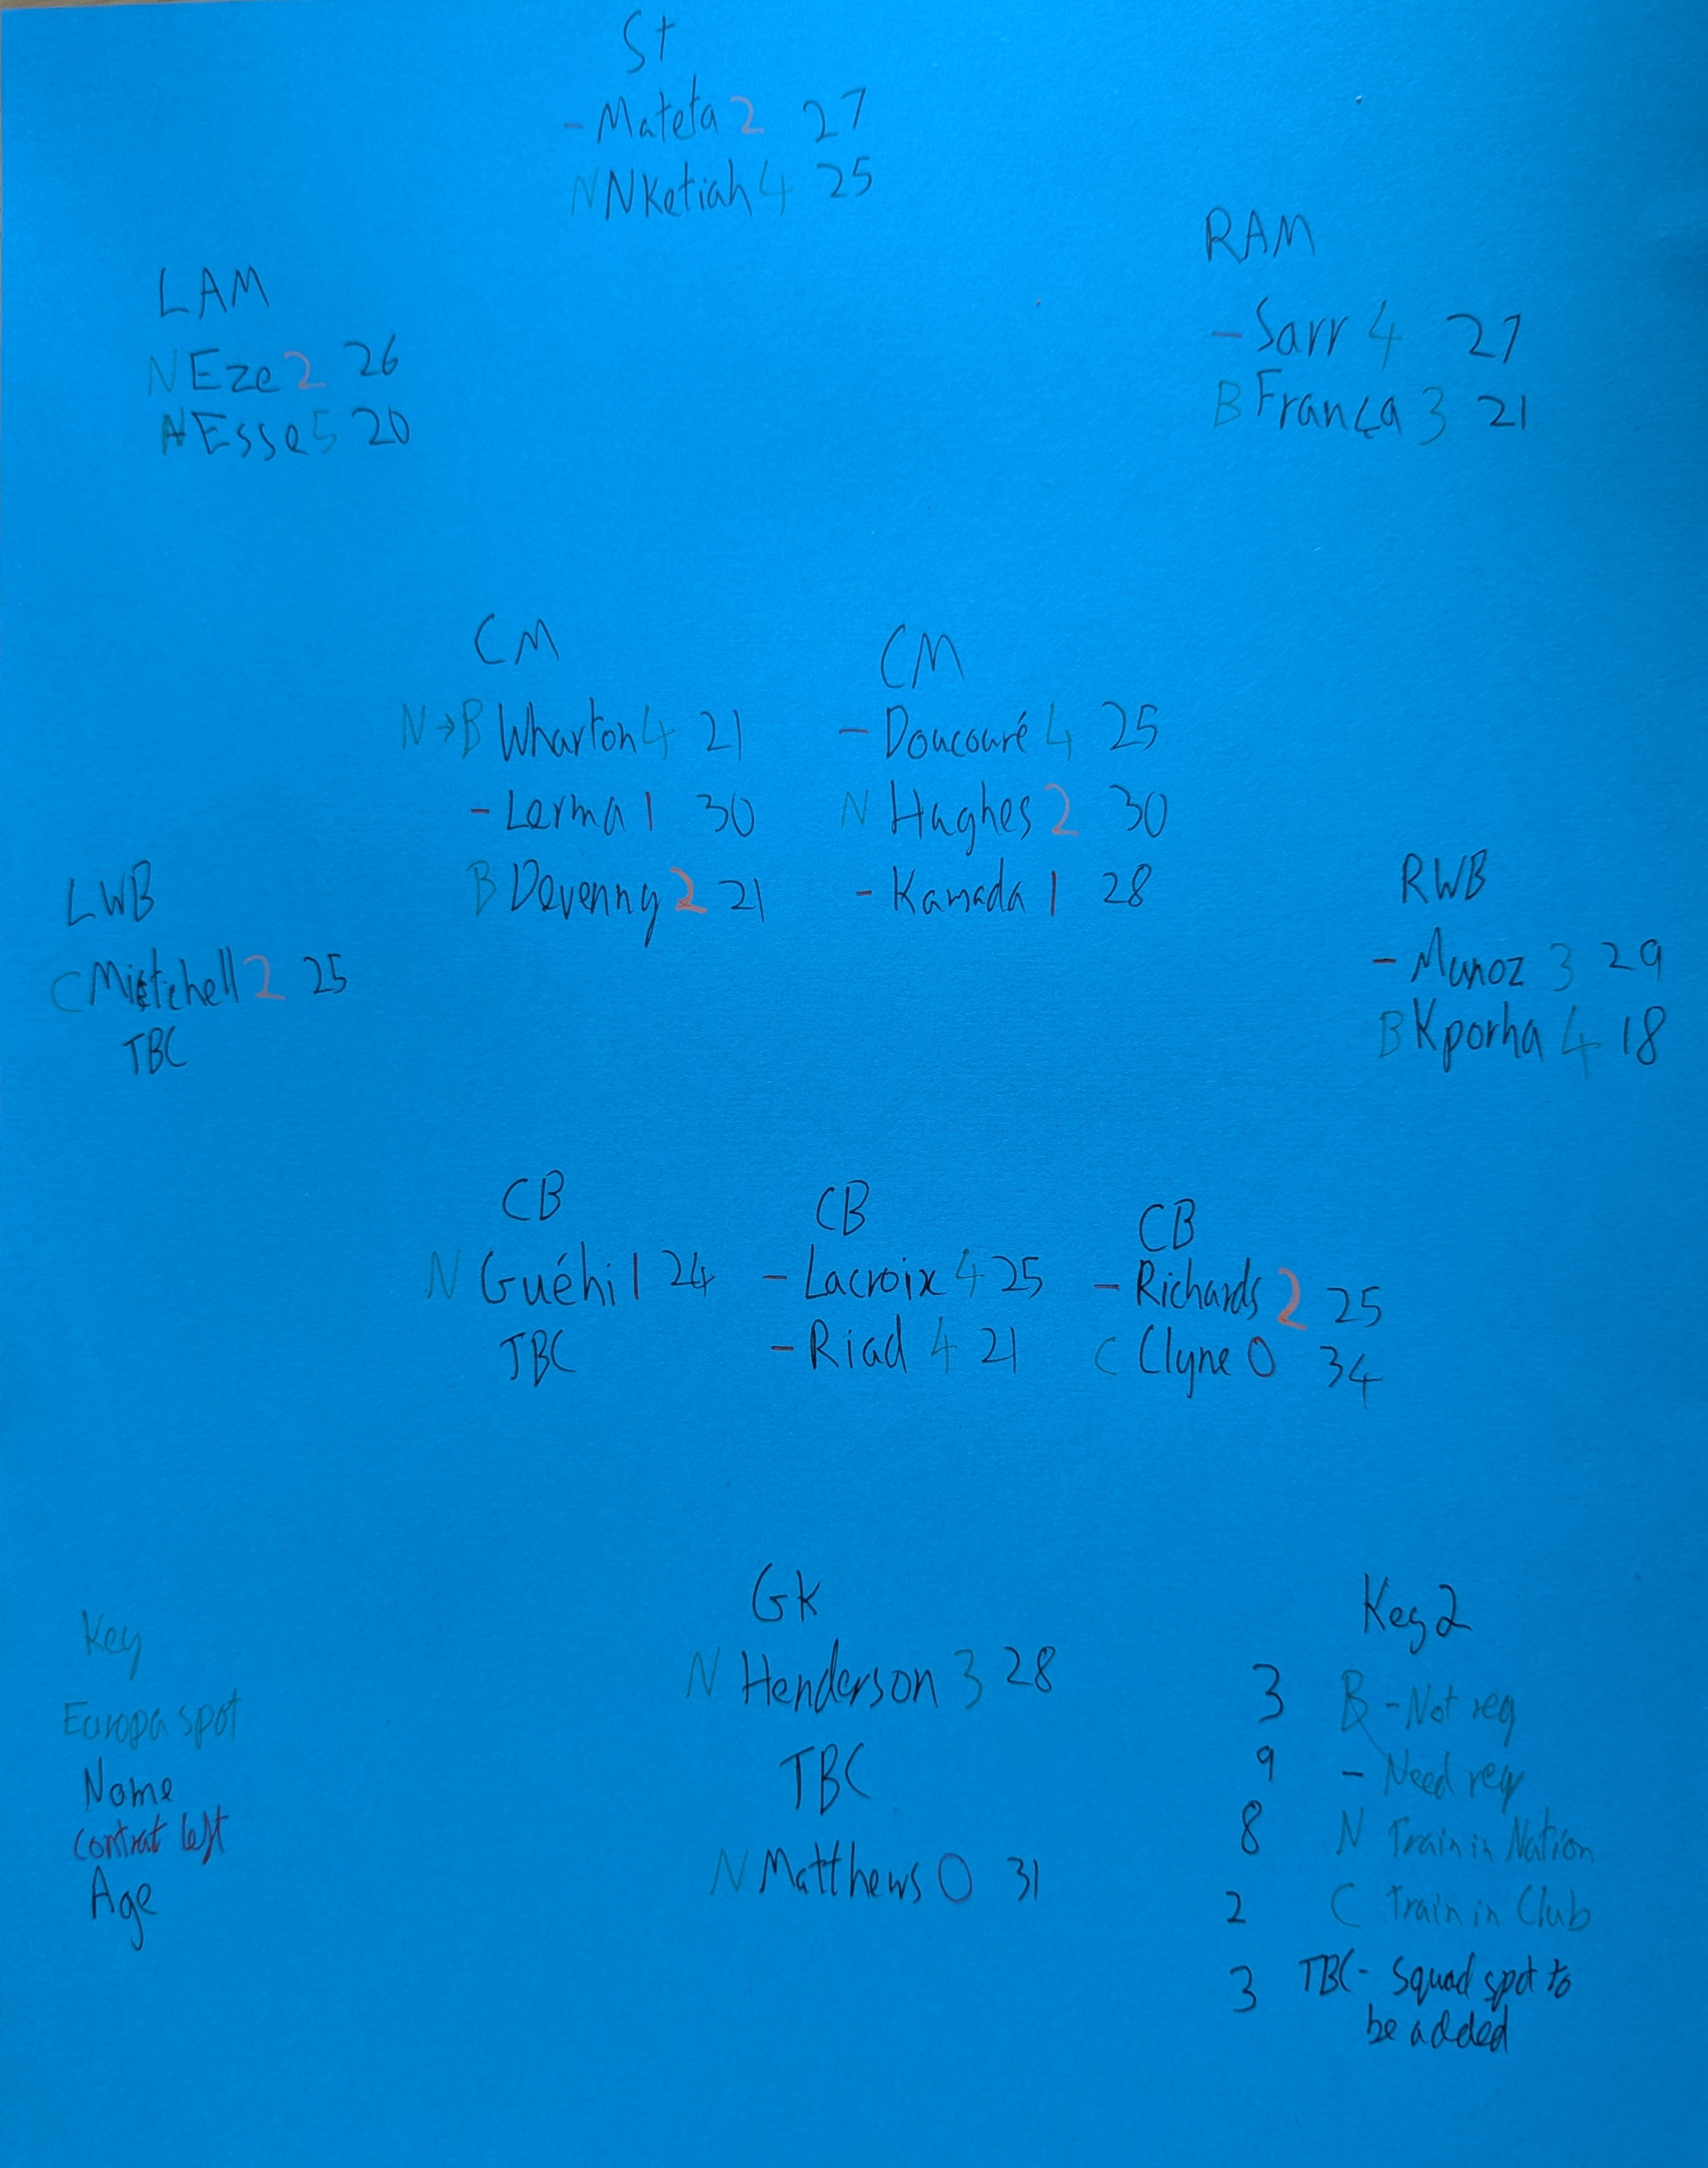 St
- Mateta 2 27
N Nketiah 4 25
LAM
N Eze 2 26
N Esse 5 20
RAM
- Sarr 4 27
B França 3 21
CM
N → B Wharton 4 21
- Lerma 1 30
B Devenny 2 21
CM
- Doucouré 4 25
N Hughes 2 30
- Kamada 1 28
LWB
C Mitchell 2 25
TBC
RWB
- Munoz 3 29
B Kporha 4 18
CB
N Guéhi 1 24
TBC
CB
- Lacroix 4 25
- Riad 4 21
CB
- Richards 2 25
C Clyne 0 34
GK
N Henderson 3 28
TBC
N Matthews 0 31
Key
Europa spot
Name
Contrat left
Age
Key 2
3 B - Not req
9 - Need req
8 N Train in Nation
2 C Train in Club
3 TBC - Squad spot to
be added